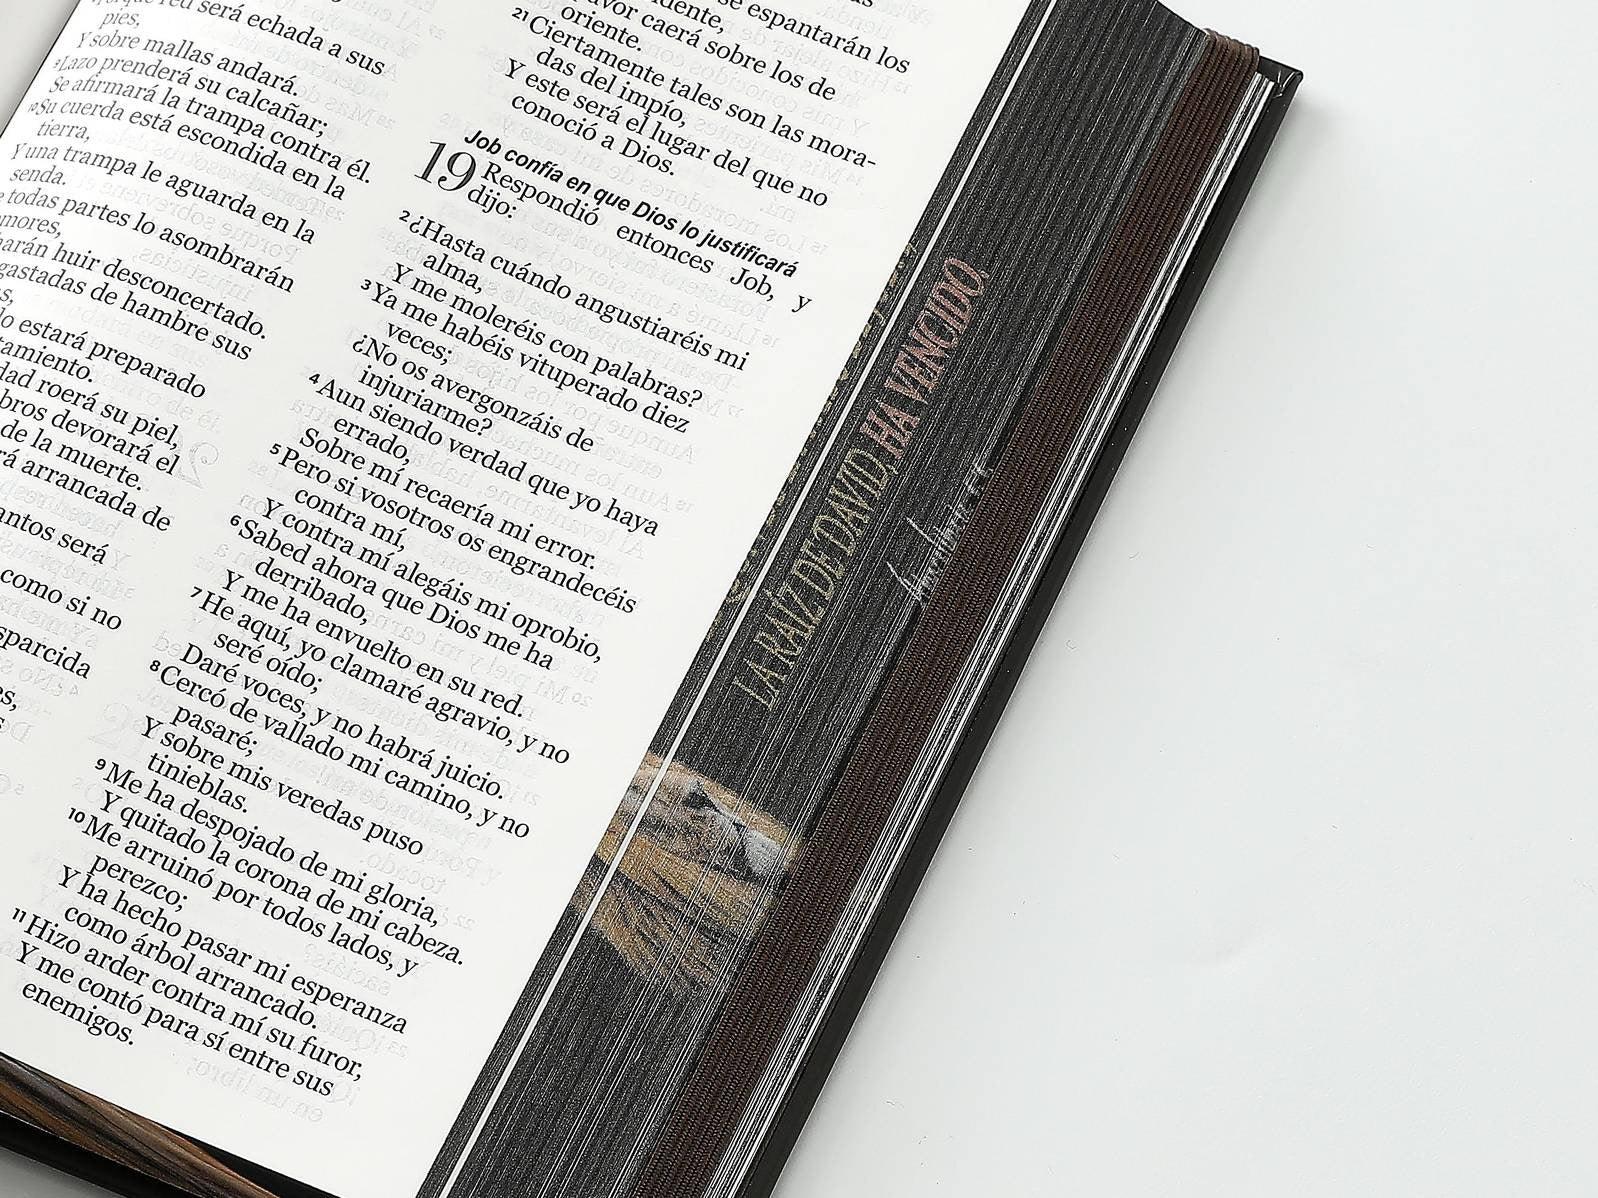 red será echada a sus
pies,
Y sobre mallas andará.
9 Lazo prenderá su calcañar;
Se afirmará la trampa contra él.
10 Su cuerda está escondida en la
tierra,
Y una trampa le aguarda en la
senda.
todas partes lo asombrarán
harán huir desconcertado.
gastadas de hambre sus
lo estará preparado
roerá su piel,
devorará el
de la muerte.
arrancada de
será
como si no
se espantarán los
caerá sobre los de
oriente.
21 Ciertamente tales son las mora-
das del impío,
Y este será el lugar del que no
conoció a Dios.
Job confía en que Dios lo justificará
19 Respondió entonces Job, y
dijo:
2 ¿Hasta cuándo angustiaréis mi
alma,
Y me moleréis con palabras?
3 Ya me habéis vituperado diez
veces;
¿No os avergonzáis de
injuriarme?
4 Aun siendo verdad que yo haya
errado,
Sobre mí recaería mi error.
5 Pero si vosotros os engrandecéis
contra mí,
Y contra mí alegáis mi oprobio,
6 Sabed ahora que Dios me ha
derribado,
Y me ha envuelto en su red.
7 He aquí, yo clamaré agravio, y no
seré oído;
Daré voces, y no habrá juicio.
8 Cercó de vallado mi camino, y no
pasaré;
Y sobre mis veredas puso
tinieblas.
9 Me ha despojado de mi gloria,
Y quitado la corona de mi cabeza.
10 Me arruinó por todos lados, y
perezco;
Y ha hecho pasar mi esperanza
como árbol arrancado.
11 Hizo arder contra mí su furor,
Y me contó para sí entre sus
enemigos.
LA RAÍZ DE DAVID, HA VENCIDO,